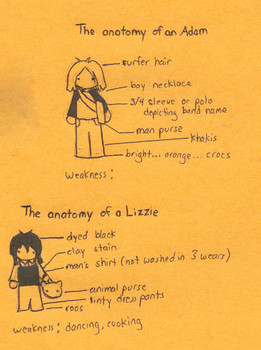 The anatomy of an Adam
surfer hair
boy necklace
3/4 sleeve or polo
depicting band name
man purse
khakis
bright... orange... crocs
weakness:
The anatomy of a Lizzie
dyed black
clay stain
man's shirt (not washed in 3 wears)
animal purse
linty dress pants
roos
weakness: dancing, cooking